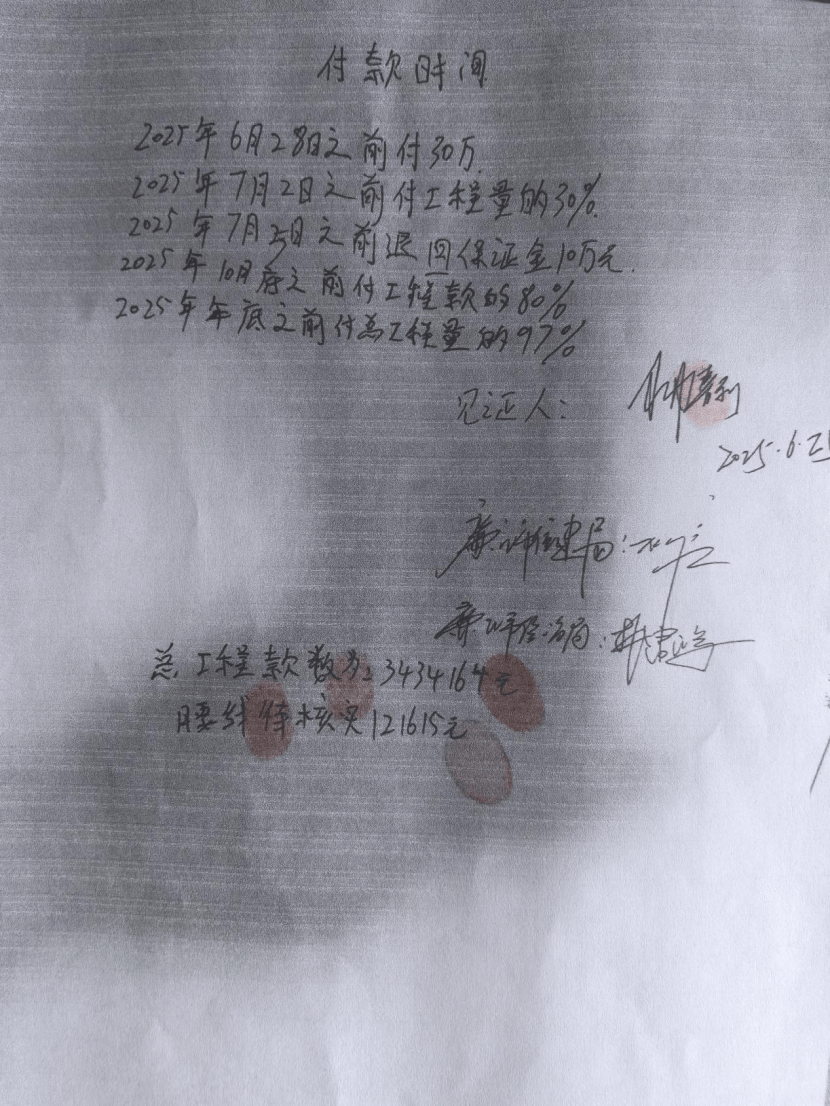 付款时间
2025年6月28日之前付30万
2025年7月2日之前付工程量的30%.
2025年7月25日之前退回保证金10万元.
2025年10月底之前付工程款的80%
2025年年底之前付总工程量的97%
见证人:
2025.6.
住建局:
局:
总工程款数为:3434164元
腰线待核实121615元